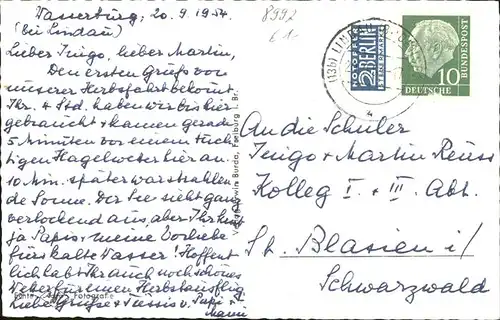 Wasserburg, 20.9.1954.
(bei Lindau)
Lieber Ingo, lieber Martin,
Den ersten Gruß von
unserer Herbstfahrt bekommt
Ihr. 4 Std. haben wir bis hier
gebraucht + kamen gerade
5 Minuten vor einem tüch-
tigen Hagelwetter hier an.
10 Min. später war strahlen-
de Sonne. Der See sieht ganz
verlockend aus, aber Ihr kennt
ja Papis + meine Vorliebe
für kaltes Wasser! Hoffent-
lich habt Ihr auch noch schönes
Wetter für einen Herbstausflug.
Liebe Grüße + Bussis v. Papi +
Mami
8992
NOTOPFER
2 BERLIN
STEUERMARKE
(13b) LINDAU
DEUTSCHE
BUNDESPOST
10
An die Schüler
Ingo + Martin Reuss
Kolleg I. + III. Abt.
St. Blasien i/
Schwarzwald
Burda, Freiburg i. Br.
Fotografie